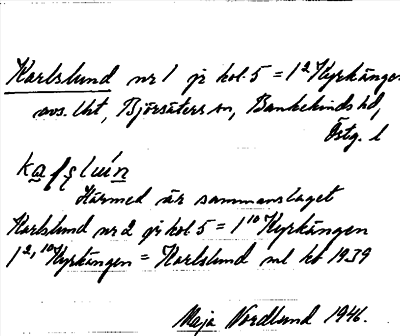 Karlslund nr 1 jr kol. 5 = 1² Kyrkängen
avs. Utt, Björsäters sn, Bankekinds hd,
Östg. l
kaʃʂluń
Härmed är sammanslaget
Karlslund nr 2 jr kol 5 = 1¹⁰ Kyrkängen
1²,¹⁰ Kyrkängen = Karlslund enl kt 1939
Maja Nordlund 1946.